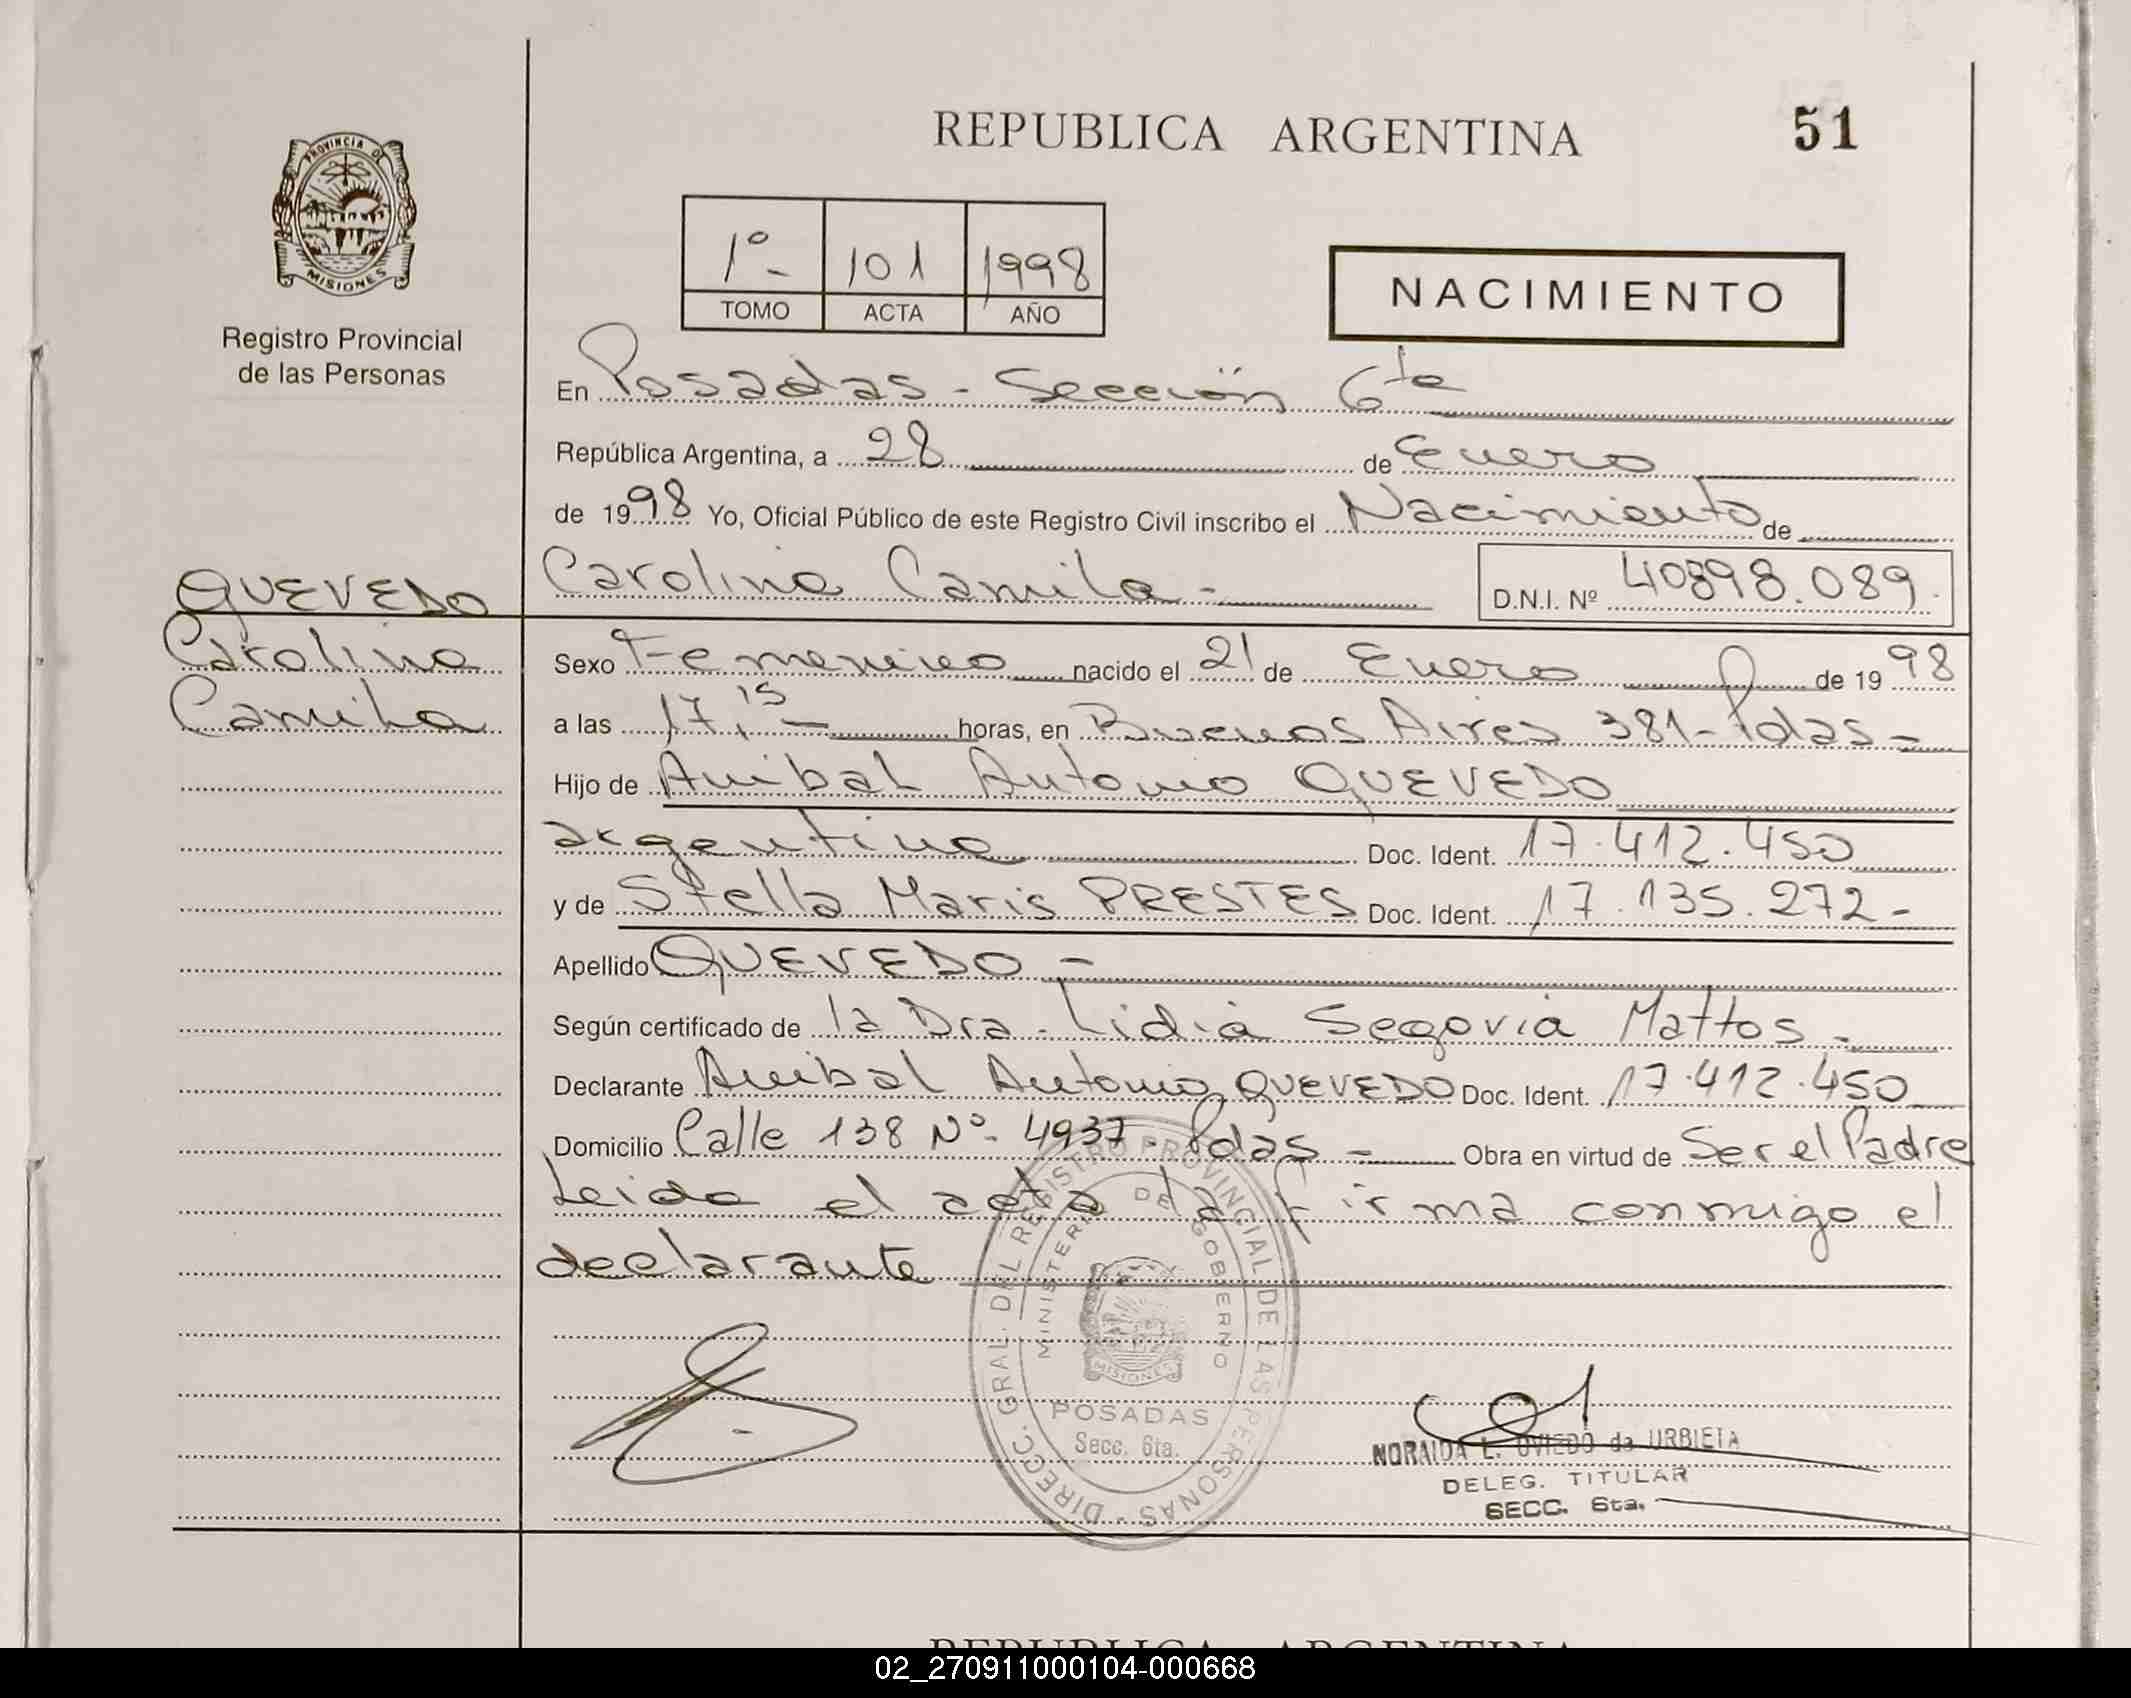 REPUBLICA ARGENTINA
51
PROVINCIA DE
MISIONES
Registro Provincial
de las Personas
1º- 101 1998
TOMO ACTA AÑO
NACIMIENTO
En Posadas - Sección 6ta
República Argentina, a 28 de Enero
de 1998 Yo, Oficial Público de este Registro Civil inscribo el Nacimiento de
QUEVEDO
Carolina Camila -
D.N.I. Nº 40898.089.
Carolina
Camila
Sexo Femenino nacido el 21 de Enero de 1998
a las 17,15 - horas, en Buenos Aires 381 - Pdas -
Hijo de Anibal Antonio QUEVEDO
argentino Doc. Ident. 17.412.450
y de Stella Maris PRESTES Doc. Ident. 17.135.272 -
Apellido QUEVEDO -
Según certificado de la Dra. Lidia Segovia Mattos -
Declarante Anibal Antonio QUEVEDO Doc. Ident. 17.412.450
Domicilio Calle 138 Nº- 4937 - Pdas - Obra en virtud de Ser el Padre
Leida el acta la firma conmigo el
declarante
DIRECC. GRAL. DEL REGISTRO PROVINCIAL DE LAS PERSONAS -
MINISTERIO DE GOBIERNO
MISIONES
POSADAS
Secc. 6ta.
NORAIDA L. OVIEDO de URBIETA
DELEG. TITULAR
SECC. 6ta.
REPUBLICA ARGENTINA
02_270911000104-000668